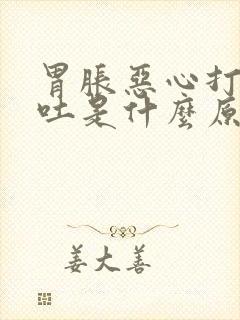 胃脹惡心打
吐是什麽原
姜大善